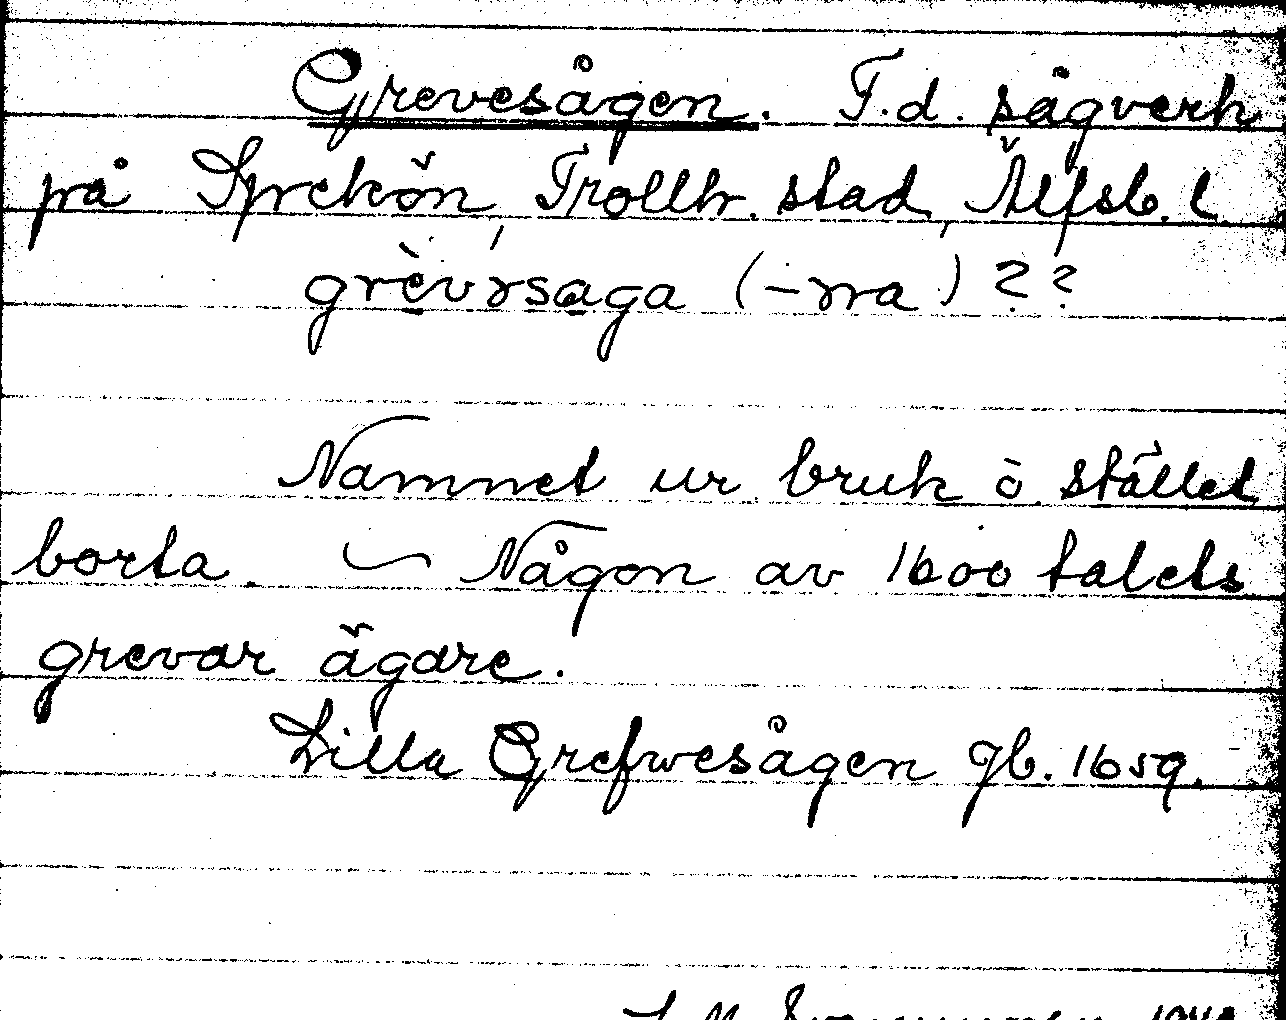 Grevesågen. F.d. sågverk
på Spekön, Trollh. stad, Älfsb. l
grèvrsaga (-rra) ??
Namnet ur bruk o stället
borta. Någon av 1600 talets
grevar ägare.
Lilla Grefwesågen Jb. 1659.